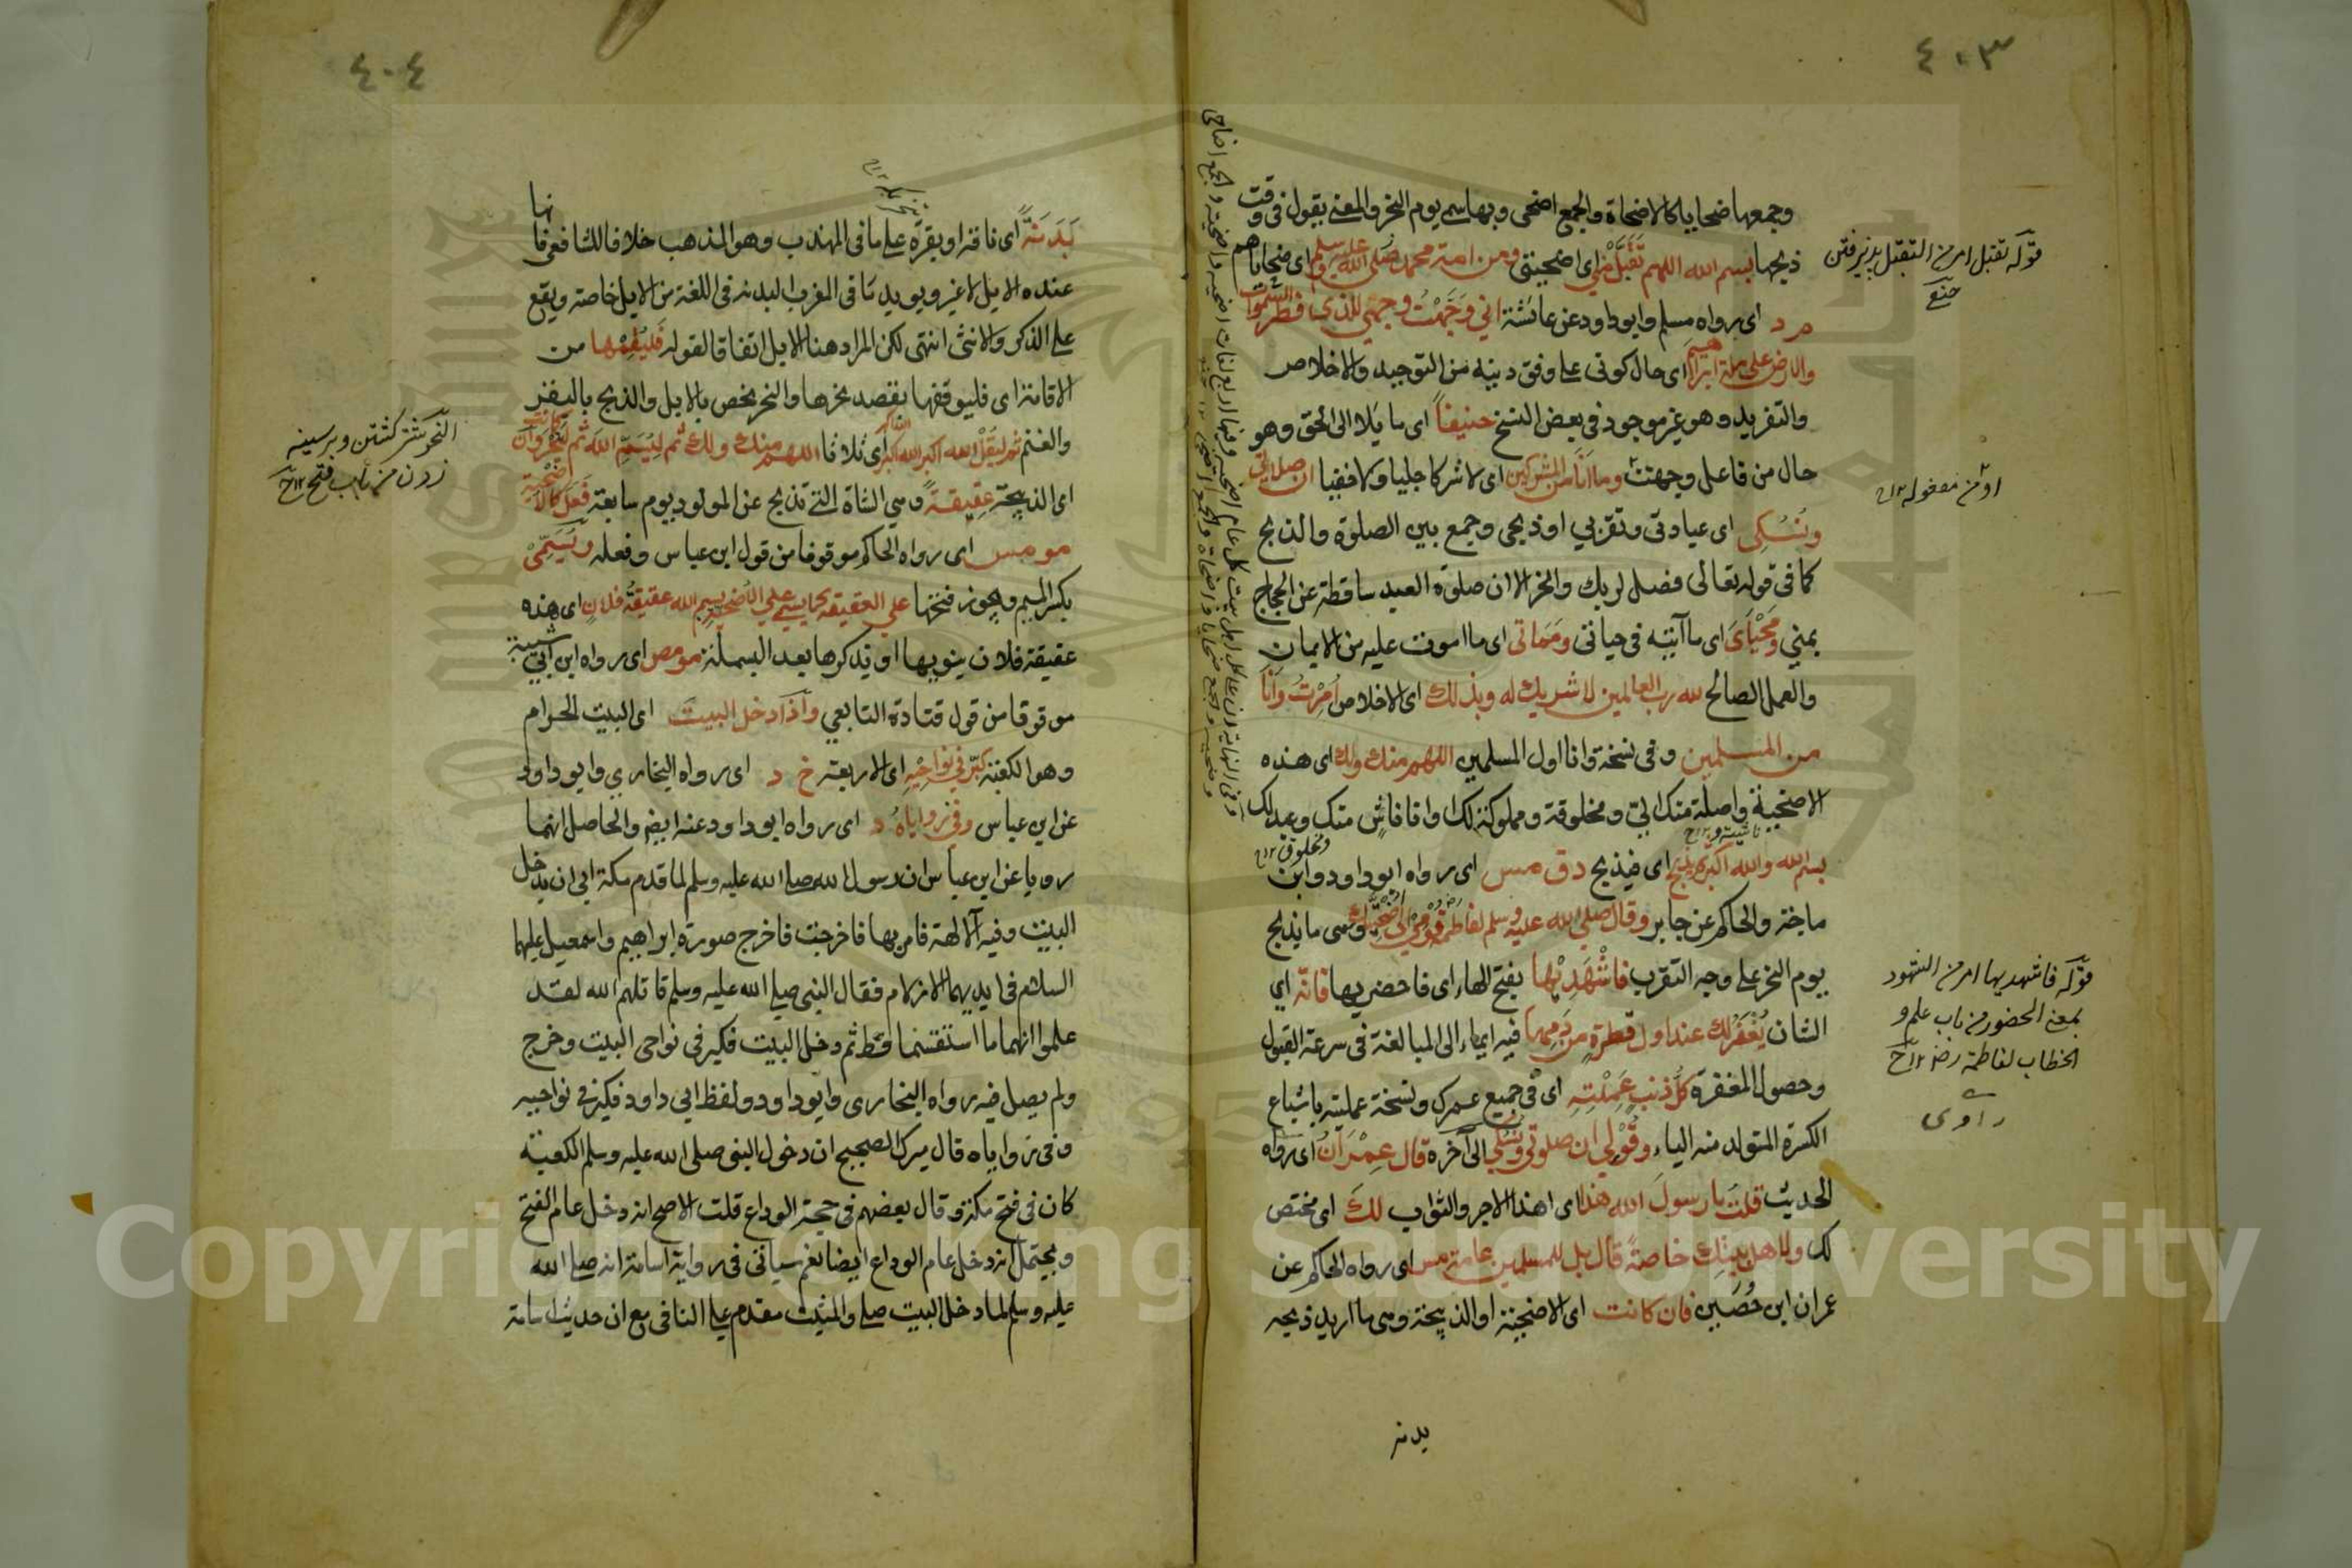 ٤٠٣
وجمعها ضحايا كالاضحاة والجمع اضحى وبها سمي يوم النحر والمعنى يقول في وقت
ذبحها بسم الله اللهم تقبل مني اى اضحيتي ومن امة محمد صلى الله عليه وسلم اى ضحاياهم
م د اى رواه مسلم وابوداود عن عائشة اني وَجَّهْتُ وجهي للذي فطر السموات
والارض على ملة ابراهيم اى حال كوني على وفق دينه من التوحيد والاخلاص
والتفريد وهو غير موجود في بعض النسخ حنيفاً اى مايلا الى الحق وهو
حال من فاعل وجهت وما انا من المشركين اى لا شركا جليا ولا خفيا ان صلاتي
ونُسُكي اى عبادتي وتقربي او ذبحي وجمع بين الصلوة والذبح
كما في قوله تعالى فصل لربك وانحر الا ان صلوة العيد ساقطة عن الحجاج
بمنى ومَحْيَايَ اى ما آتيته في حياتي ومَمَاتي اى ما اموت عليه من الايمان
والعمل الصالح لله رب العالمين لا شريك له وبذلك اى الاخلاص اُمِرْتُ وَاَنا
من المسلمين وفي نسخة وانا اول المسلمين اللهم منك ولك اى هذه
الاضحية واصلة منك اليّ ومخلوقة ومملوكة لك
بسم الله والله اكبر ثم يذبح اى فيذبح د ق مس اى رواه ابوداود وابن
ماجة والحاكم عن جابر وقال صلى الله عليه وسلم لفاطمة قُوْمِي الى اُضحيتك وهى ما يذبح
يوم النحر على وجه التقرب فاشْهَدِيْها بفتح الهاء اى فاحضريها فانّه اي
الشان يُغْفَرُ لكِ عند اول قطرةٍ من دمها فيه ايماء الى المبالغة في سرعة القبول
وحصول المغفرة كلُّ ذنبٍ عَمِلْتِهِ اى في جميع عمرك ونسخة عملتيه باشباع
الكسرة المتولد منه الياء وقُوْلِي ان صلوتي ونُسُكي الى آخره قال عِمْرَانُ اى رواه
الحديث قلت يا رسول الله هذا اى اهذا الاجر والثواب لكَ اى مختص
لك ولاهل بيتك خاصةً قال بل للمسلمين عامة مس اى رواه الحاكم عن
عمران ابن حُصَين فان كانت اى الاضحية او الذبيحة وهى ما اريد ذبحه
بدنه
قوله تقبل امر من التقبل پذيرفتن
قوله فاشهديها امر من الشهود
بمعنى الحضور من باب علم و
الخطاب لفاطمة رض ١٢
راوى
٤٠٤
بَدَنَةً اى ناقة او بقرة على ما في المهذب وهو المذهب خلافا للشافعي فانها
عنده الابل لا غير ويويد ما في المغرب البدنة في اللغة من الابل خاصة ويقع
على الذكر والانثى انتهى لكن المراد هنا الابل اتفاقا لقوله فَليُقِمْها من
الاقامة اى فليوقفها بقصد نحرها والنحر يخص بالابل والذبح بالبقر
والغنم ثم ليَقُلْ الله اكبر الله اكبر الله اكبر اى ثلاثا اللهم منك ولك ثم ليُسَمِّ الله ثم لينحر وان كانت
اى الذبيحة عقيقةً وهي الشاة التي تذبح عن المولود يوم سابعة فَعَلَ كالاضحية
مو مس اى رواه الحاكم موقوفا من قول ابن عباس وفعله ويُسَمِّي
بكسر الميم ويجوز فتحها على العقيقة كما يسمي على الاُضحية بسم الله عقيقةُ فلانٍ اى هذه
عقيقة فلان ينويها او يذكرها بعد البسملة مو مص اى رواه ابن ابي شيبة
موقوفا من قول قتادة التابعي واذا دخل البيت اى البيت الحرام
وهو الكعبة كبّر في نواحِيْهِ اى الاربعة خ د اى رواه البخاري وابوداود
عن ابن عباس وفي زواياهُ د اى رواه ابوداود عنه ايضا والحاصل انهما
رويا عن ابن عباس ان رسول الله صلى الله عليه وسلم لما قدم مكة ابى ان يدخل
البيت وفيه آلالهة فامر بها فاخرجت فاخرج صورة ابراهيم واسمعيل عليهما
السلام في ايديهما الازلام فقال النبي صلى الله عليه وسلم قاتلهم الله لقد
علموا انهما ما استقسما قط ثم دخل البيت فكبر في نواحى البيت وخرج
ولم يصل فيه رواه البخارى وابوداود ولفظ ابي داود فكبر في نواحيه
وفي زواياه قال ميرك الصحيح ان دخول النبى صلى الله عليه وسلم الكعبة
كان في فتح مكة وقال بعضهم في حجة الوداع قلت الاصح انه دخل عام الفتح
ويحتمل انه دخل عام الوداع ايضا نعم سياتي في رواية اسامة انه صلى الله
عليه وسلم لما دخل البيت صلى والمثبت مقدم على النافى مع ان حديث اسامة
النحر شتر كشتن وبر سينه
زدن من باب فتح ١٢
Copyright © King Saud University